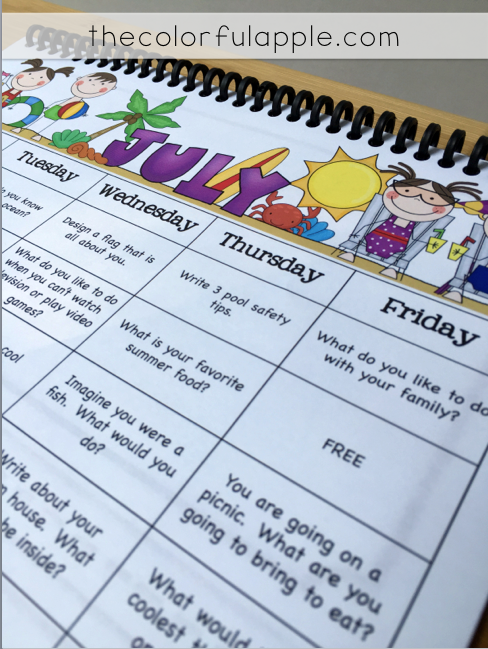 thecolorfulapple.com
JULY
Tuesday
Wednesday
Thursday
Friday
you know
ocean?
Design a flag that is
all about you.
Write 3 pool safety
tips.
What do you like to do
with your family?
What do you like to do
when you can't watch
levision or play video
games?
What is your favorite
summer food?
FREE
cool
Imagine you were a
fish. What would you
do?
You are going on a
picnic. What are you
going to bring to eat?
Write about your
house. What
be inside?
What would
coolest